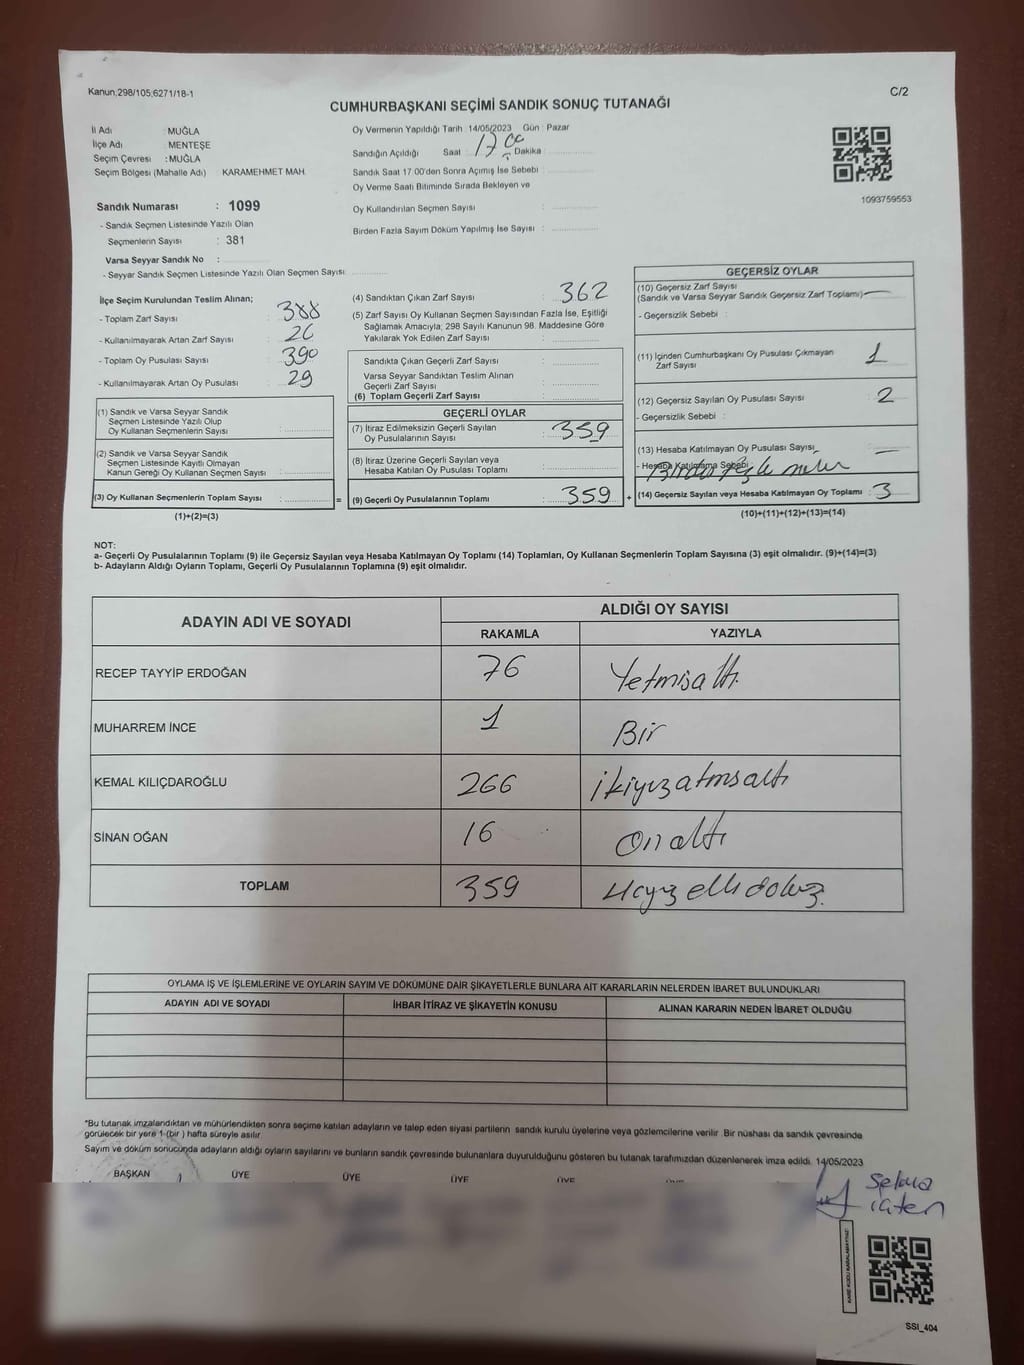 Kanun;298/105;6271/18-1
C/2
CUMHURBAŞKANI SEÇİMİ SANDIK SONUÇ TUTANAĞI
İl Adı : MUĞLA
İlçe Adı : MENTEŞE
Seçim Çevresi : MUĞLA
Seçim Bölgesi (Mahalle Adı) KARAMEHMET MAH.
Sandık Numarası : 1099
- Sandık Seçmen Listesinde Yazılı Olan
Seçmenlerin Sayısı : 381
Varsa Seyyar Sandık No :
- Seyyar Sandık Seçmen Listesinde Yazılı Olan Seçmen Sayısı:
Oy Vermenin Yapıldığı Tarih 14/05/2023 Gün : Pazar
Sandığın Açıldığı Saat : 17 00 Dakika
Sandık Saat 17.00'den Sonra Açımış İse Sebebi :
Oy Verme Saati Bitiminde Sırada Bekleyen ve
Oy Kullandırılan Seçmen Sayısı :
Birden Fazla Sayım Döküm Yapılmış İse Sayısı :
1093759553
İlçe Seçim Kurulundan Teslim Alınan;
- Toplam Zarf Sayısı : 388
- Kullanılmayarak Artan Zarf Sayısı : 26
- Toplam Oy Pusulası Sayısı : 390
- Kullanılmayarak Artan Oy Pusulası : 29
(1) Sandık ve Varsa Seyyar Sandık
Seçmen Listesinde Yazılı Olup
Oy Kullanan Seçmenlerin Sayısı :
(2) Sandık ve Varsa Seyyar Sandık
Seçmen Listesinde Kayıtlı Olmayan
Kanun Gereği Oy Kullanan Seçmen Sayısı :
(3) Oy Kullanan Seçmenlerin Toplam Sayısı : =
(1)+(2)=(3)
(4) Sandıktan Çıkan Zarf Sayısı : 362
(5) Zarf Sayısı Oy Kullanan Seçmen Sayısından Fazla İse, Eşitliği
Sağlamak Amacıyla; 298 Sayılı Kanunun 98. Maddesine Göre
Yakılarak Yok Edilen Zarf Sayısı :
Sandıkta Çıkan Geçerli Zarf Sayısı :
Varsa Seyyar Sandıktan Teslim Alınan
Geçerli Zarf Sayısı :
(6) Toplam Geçerli Zarf Sayısı :
GEÇERLİ OYLAR
(7) İtiraz Edilmeksizin Geçerli Sayılan
Oy Pusulalarının Sayısı : 359
(8) İtiraz Üzerine Geçerli Sayılan veya
Hesaba Katılan Oy Pusulası Toplamı :
(9) Geçerli Oy Pusulalarının Toplamı : 359 +
GEÇERSİZ OYLAR
(10) Geçersiz Zarf Sayısı
(Sandık ve Varsa Seyyar Sandık Geçersiz Zarf Toplamı) —
- Geçersizlik Sebebi :
(11) İçinden Cumhurbaşkanı Oy Pusulası Çıkmayan
Zarf Sayısı 1
(12) Geçersiz Sayılan Oy Pusulası Sayısı : 2
- Geçersizlik Sebebi :
(13) Hesaba Katılmayan Oy Pusulası Sayısı —
- Hesaba Katılmama Sebebi
(14) Geçersiz Sayılan veya Hesaba Katılmayan Oy Toplamı : 3
(10)+(11)+(12)+(13)=(14)
NOT:
a- Geçerli Oy Pusulalarının Toplamı (9) ile Geçersiz Sayılan veya Hesaba Katılmayan Oy Toplamı (14) Toplamları, Oy Kullanan Seçmenlerin Toplam Sayısına (3) eşit olmalıdır. (9)+(14)=(3)
b- Adayların Aldığı Oyların Toplamı, Geçerli Oy Pusulalarının Toplamına (9) eşit olmalıdır.
ADAYIN ADI VE SOYADI ALDIĞI OY SAYISI
RAKAMLA YAZIYLA
RECEP TAYYİP ERDOĞAN 76 Yetmişaltı
MUHARREM İNCE 1 Bir
KEMAL KILIÇDAROĞLU 266 ikiyüzatmışaltı
SİNAN OĞAN 16 Onaltı
TOPLAM 359 üçyüz ellidokuz
OYLAMA İŞ VE İŞLEMLERİNE VE OYLARIN SAYIM VE DÖKÜMÜNE DAİR ŞİKAYETLERLE BUNLARA AİT KARARLARIN NELERDEN İBARET BULUNDUKLARI
ADAYIN ADI VE SOYADI İHBAR İTİRAZ VE ŞİKAYETİN KONUSU ALINAN KARARIN NEDEN İBARET OLDUĞU
*Bu tutanak imzalandıktan ve mühürlendikten sonra seçime katılan adayların ve talep eden siyasi partilerin sandık kurulu üyelerine veya gözlemcilerine verilir. Bir nüshası da sandık çevresinde
görülecek bir yere 1 (bir) hafta süreyle asılır.
Sayım ve döküm sonucunda adayların aldığı oyların sayılarını ve bunların sandık çevresinde bulunanlara duyurulduğunu gösteren bu tutanak tarafımızdan düzenlenerek imza edildi. 14/05/2023
BAŞKAN ÜYE ÜYE ÜYE ÜYE
KARE KODU KARALAMAYINIZ!
SSI_404